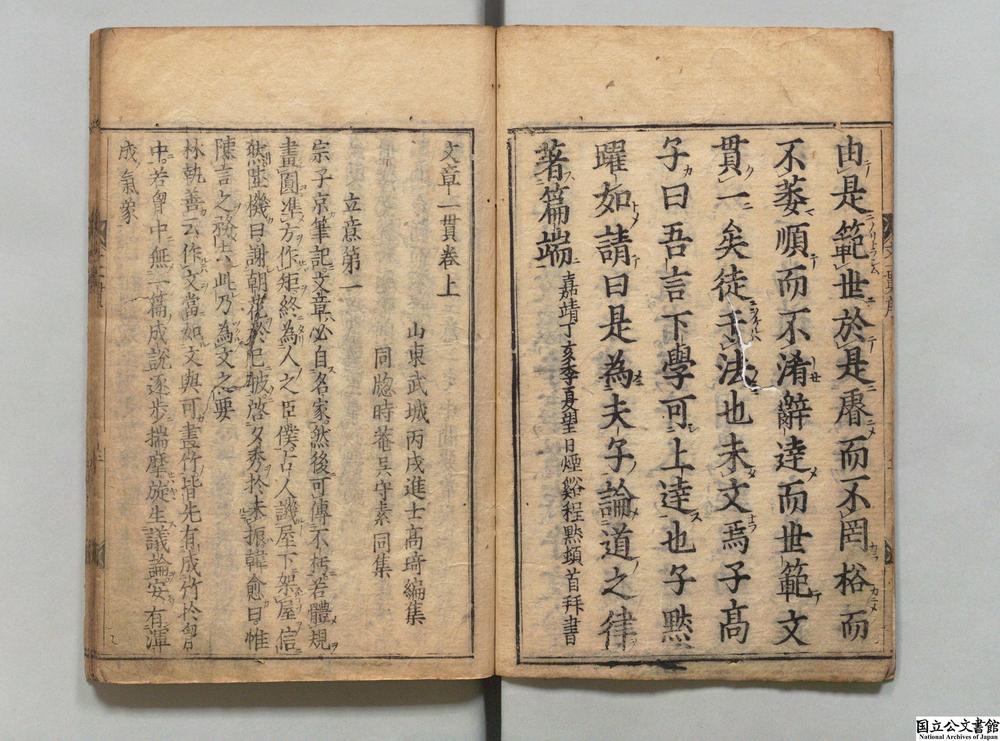 由是範世於是㢘而不罔格而
不萎順而不淆辭達而世範文
貫一矣徒玉法也未文焉子高
子曰吾言下學可上達也子黙
躍如請曰是為夫子論道之律
著篇端嘉靖丁亥季夏望日煙谿程黙頓首拜書
文章一貫卷上
山東武城丙戌進士高琦編集
同脧時菴吳守素同集
立意第一
宗子京筆記文章必自名家然後可傳不朽若體規
畫圓凖方作矩終為人之臣僕古人譏屋下架屋信
然陸機曰謝朝花於已披啓夕秀於未振韓愈曰惟
陳言之務去此乃為文之要
林執善云作文當如文與可畫竹皆先有成竹於胷
中若胷中無一篇成說逐歩揣摩旋生議論安有渾
成氣象
国立公文書館
National Archives of Japan